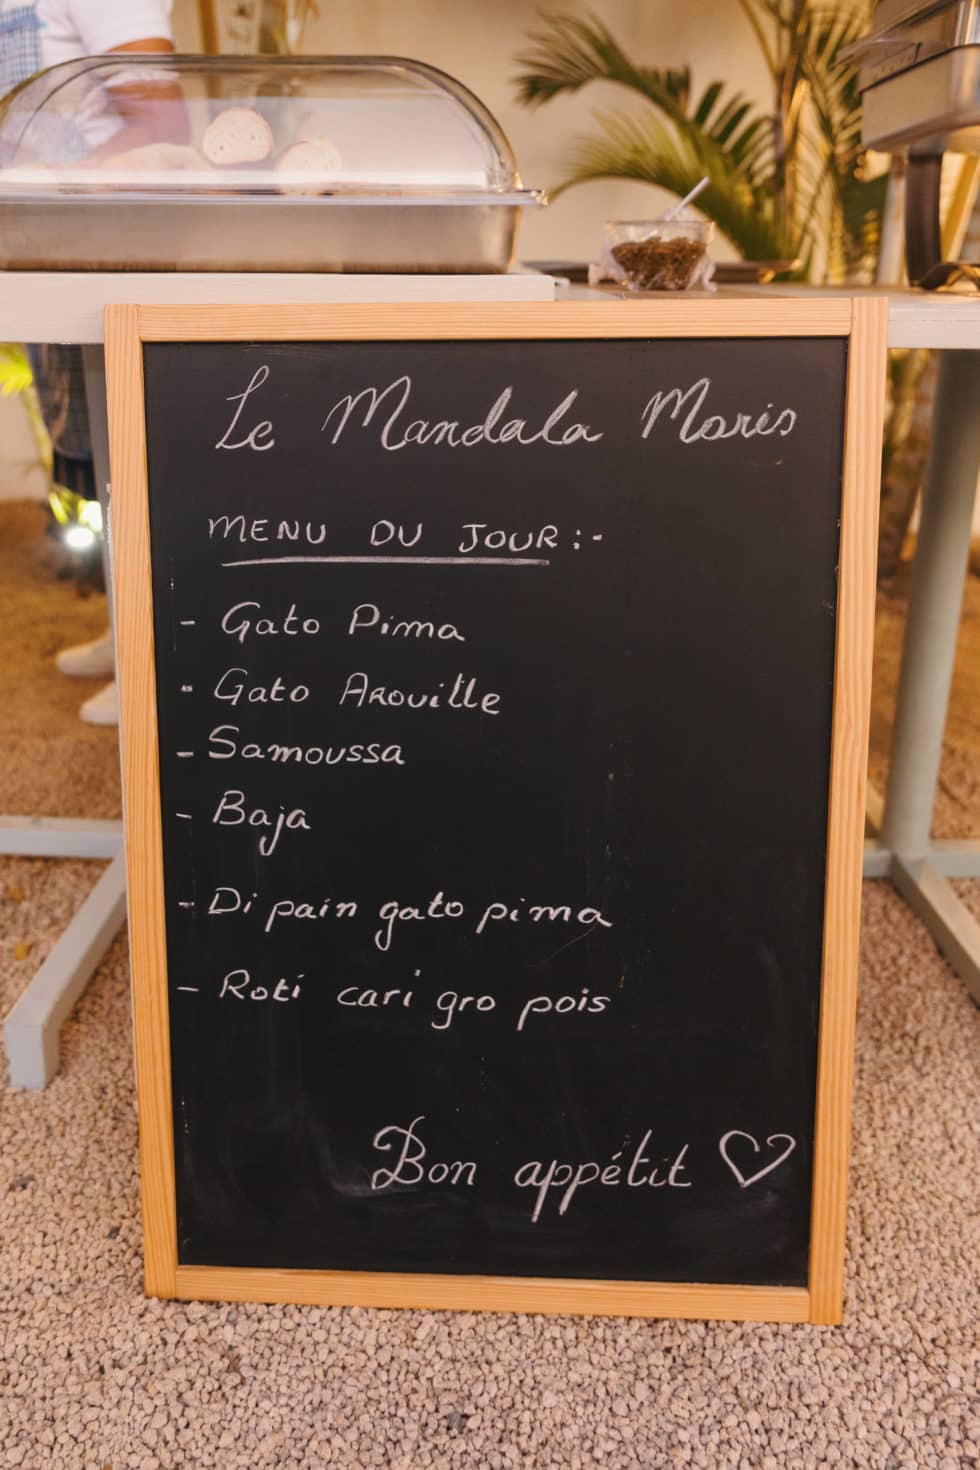 Le Mandala Moris
MENU DU JOUR :-
- Gato Pima
- Gato Arouille
- Samoussa
- Baja
- Di pain gato pima
- Roti cari gro pois
Bon appétit ♡